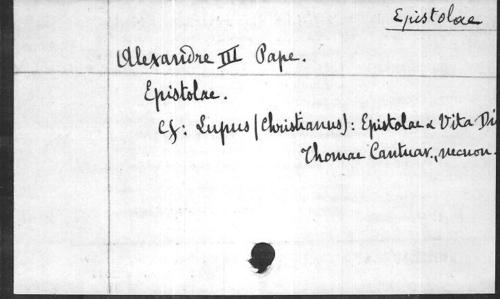 Epistolae
Alexandre III Pape.
Epistolae.
Cf: Lupus (Christianus): Epistolae & Vita Di
Thomae Cantuar., necnon.